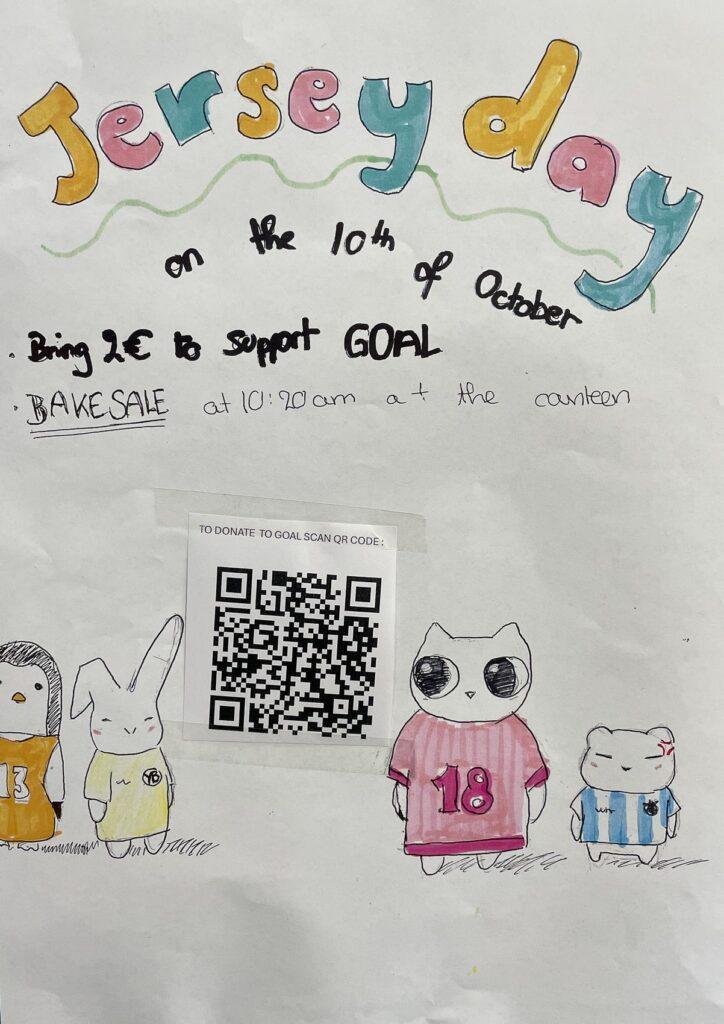 Jersey day
on the 10th of October
· Bring 2€ to support GOAL
· BAKESALE at 10:20am at the canteen
TO DONATE TO GOAL SCAN QR CODE:
13
YB
18